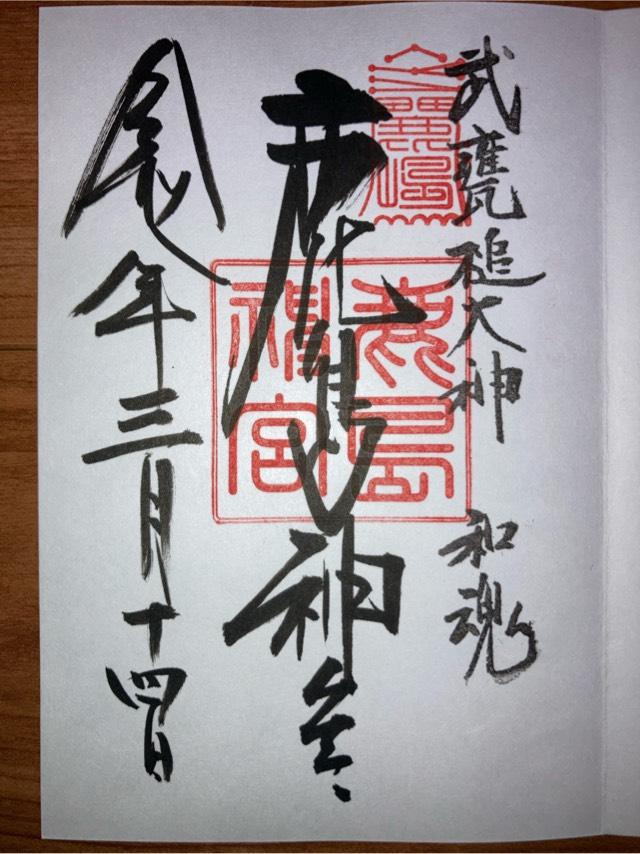 武甕槌大神 和魂
鹿島神宮
年三月十四日
鹿島
神宮